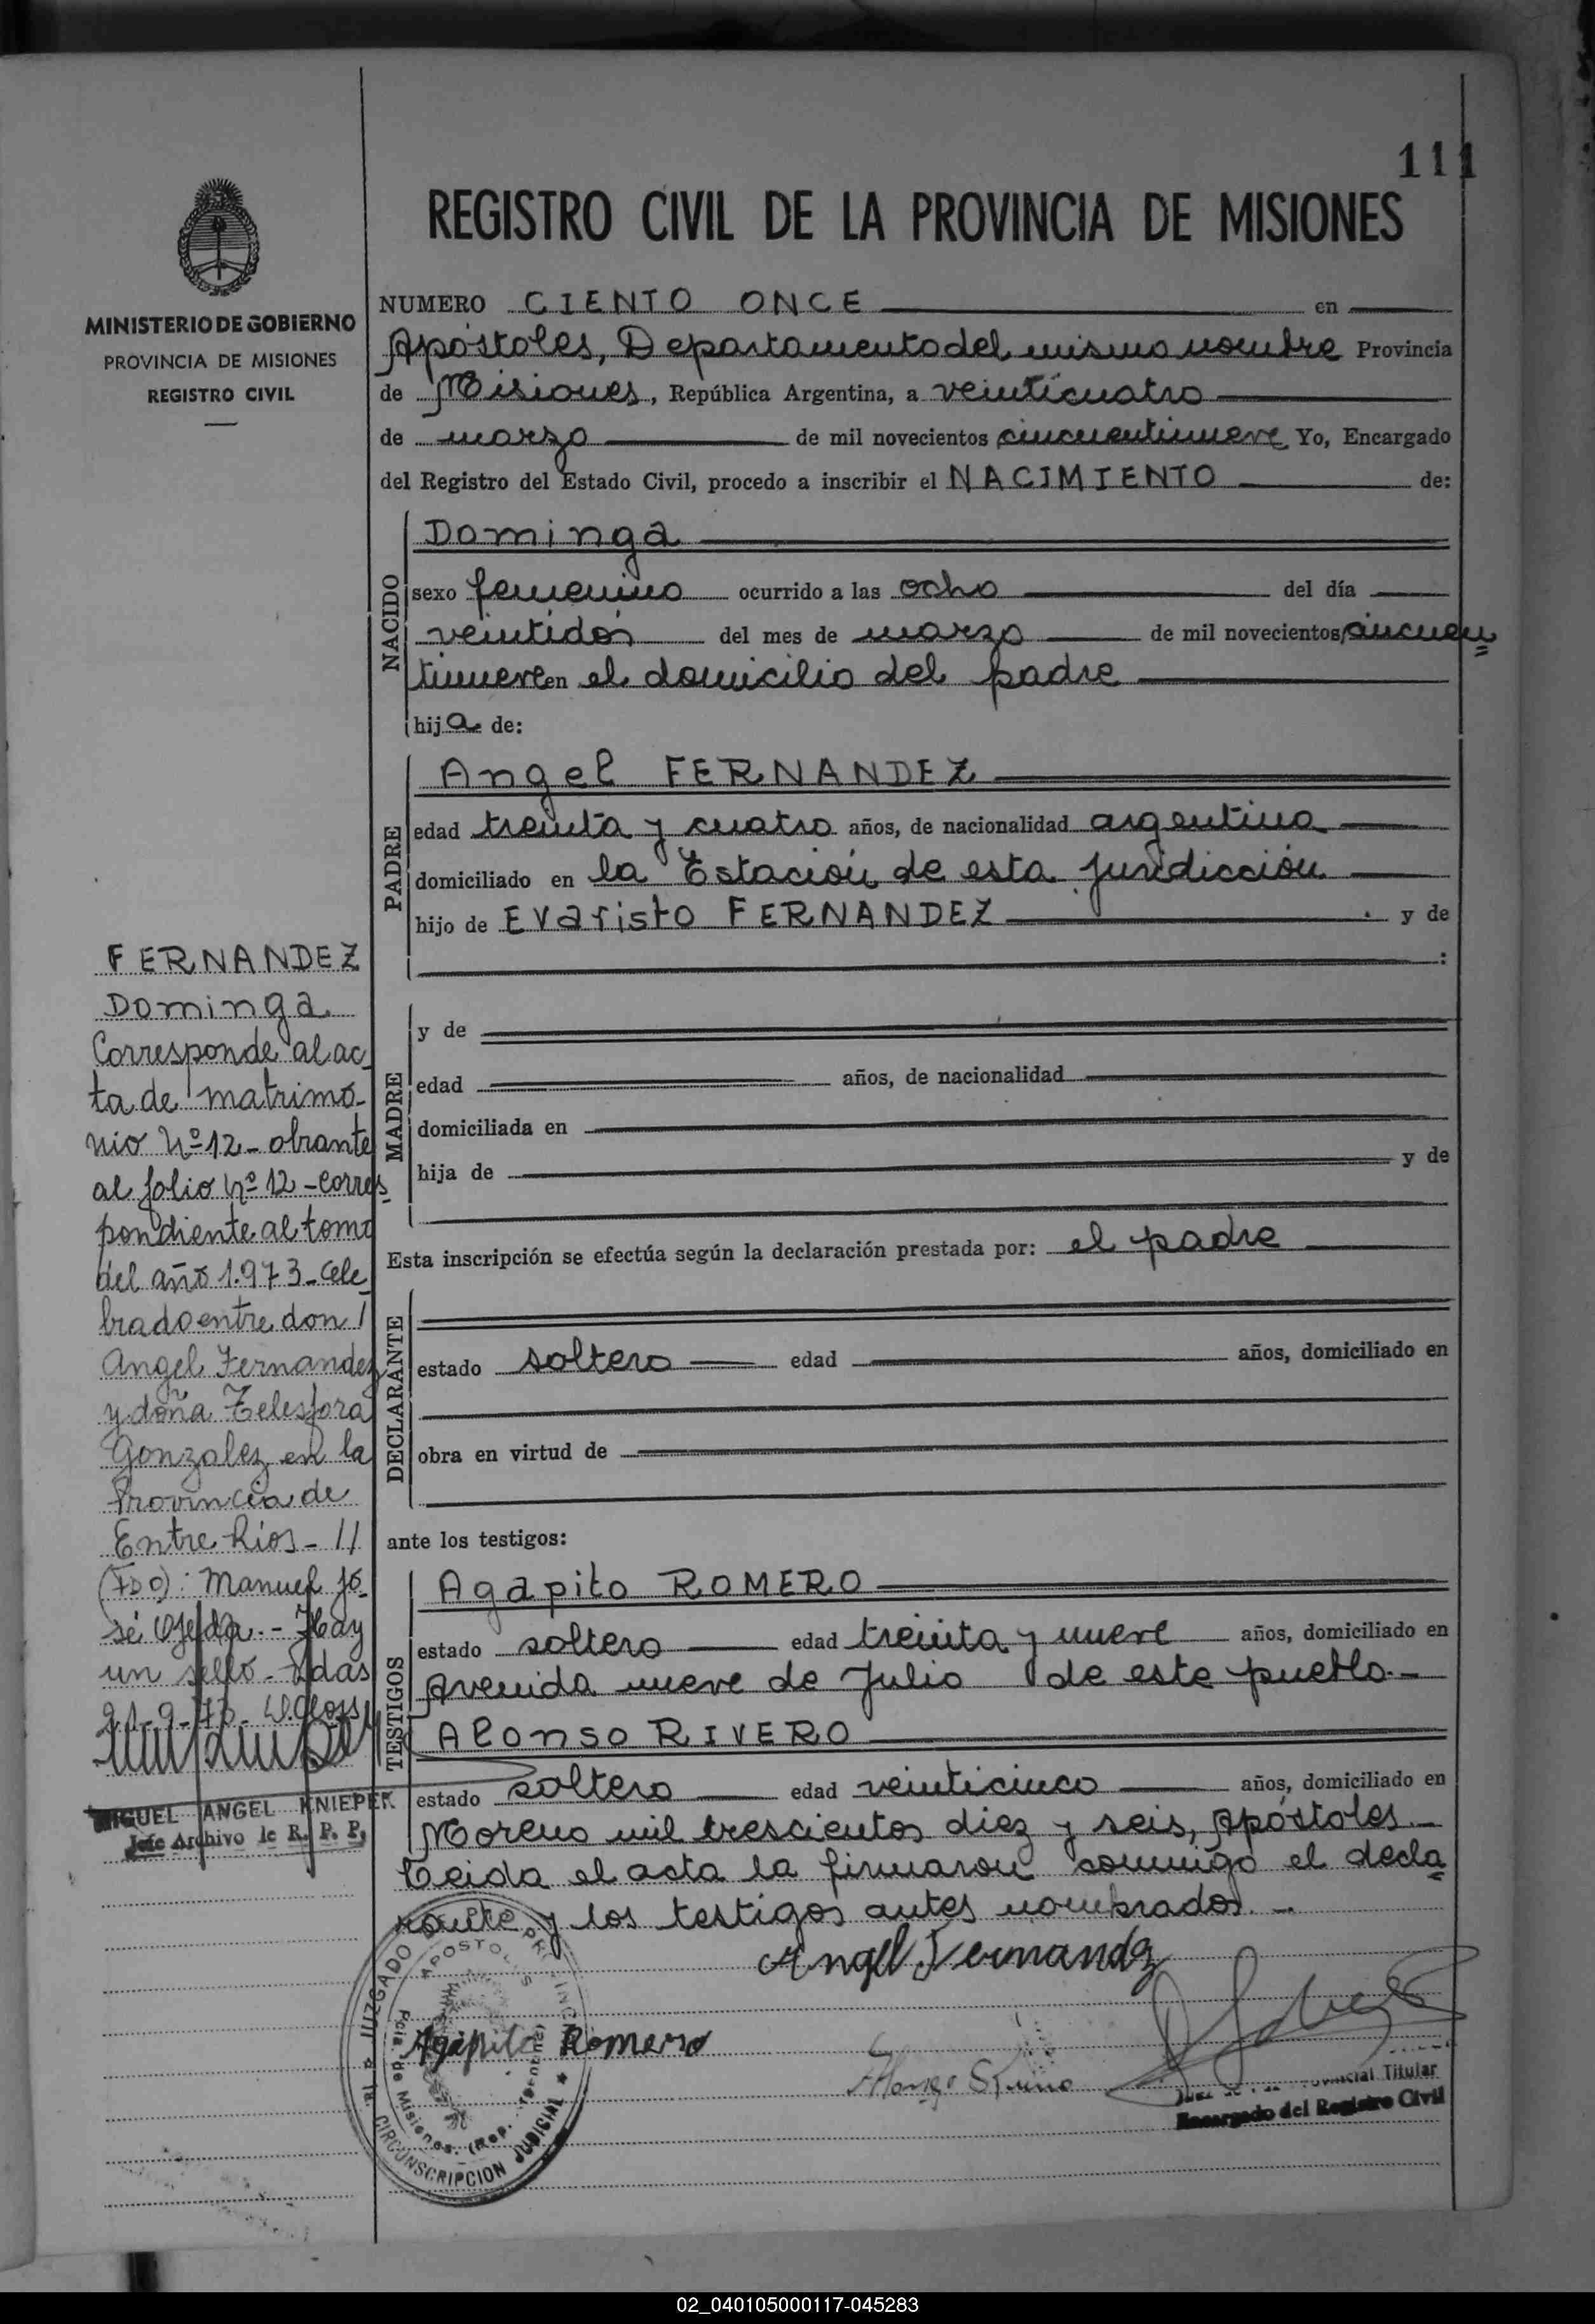 111
REGISTRO CIVIL DE LA PROVINCIA DE MISIONES
MINISTERIO DE GOBIERNO
PROVINCIA DE MISIONES
REGISTRO CIVIL
NUMERO CIENTO ONCE en
Apóstoles, Departamento del mismo nombre Provincia
de Misiones, República Argentina, a veinticuatro
de marzo de mil novecientos cincuentinueve Yo, Encargado
del Registro del Estado Civil, procedo a inscribir el NACIMIENTO de:
NACIDO
Dominga
sexo femenino ocurrido a las ocho del día
veintidós del mes de marzo de mil novecientos cincuen
tinueve en el domicilio del padre
hija de:
PADRE
Angel FERNANDEZ
edad treinta y cuatro años, de nacionalidad argentina
domiciliado en la Estación de esta juridicción
hijo de Evaristo FERNANDEZ y de
:
MADRE
y de
edad años, de nacionalidad
domiciliada en
hija de y de
Esta inscripción se efectúa según la declaración prestada por: el padre
DECLARANTE
estado soltero edad años, domiciliado en
obra en virtud de
ante los testigos:
TESTIGOS
Agapito ROMERO
estado soltero edad treinta y nueve años, domiciliado en
Avenida nueve de Julio de este pueblo.-
Alonso RIVERO
estado soltero edad veinticinco años, domiciliado en
Moreno mil trescientos diez y seis, Apóstoles.-
Leida el acta la firmaron conmigo el decla
rante y los testigos antes nombrados.-
Angel Fernandez
Agapito Romero
Titular
Encargado del Registro Civil
JUZGADO DE
APOSTOLES
Pcia. de Misiones. (Rep. Argentina)
CIRCUNSCRIPCION JUDICIAL
FERNANDEZ
Dominga
Corresponde al ac
ta de matrimo-
nio Nº 12 - obrante
al folio Nº 12 - corres
pondiente al tomo
del año 1.973 - cele
brado entre don /
Angel Fernandez
y doña Telesfora
Gonzalez en la
Provincia de
Entre Rios - //
(FDO): Manuel Jo-
sé Ojeda. - Hay
un sello - Pdas
21-9-73
MIGUEL ANGEL KNIEPER
Jefe Archivo de R. P. P.
02_040105000117-045283